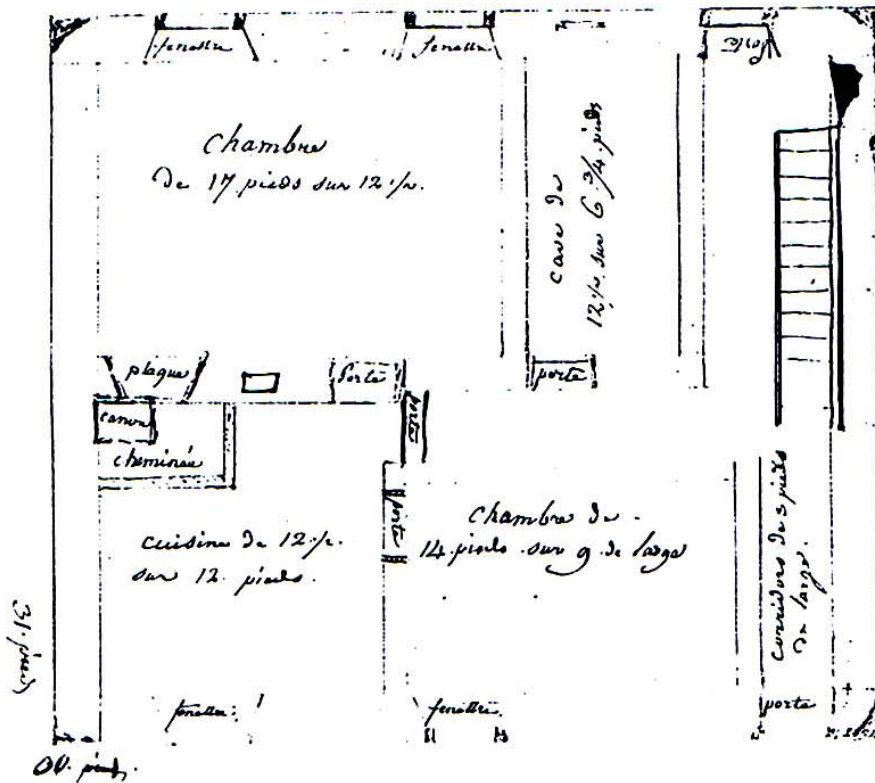 fenettre
fenettre
Porte
Chambre
de 17 pieds sur 12 1/2.
cave de
12 1/2 sur 6 3/4 pieds
plaque
Porte
porte
cheminée
porte
porte
cuisine de 12 1/2.
sur 12 pieds.
Chambre de
14 pieds sur 9 de large
corridors de 3 pieds
de large.
31. pieds
fenettre
fenettre
porte
pieds.